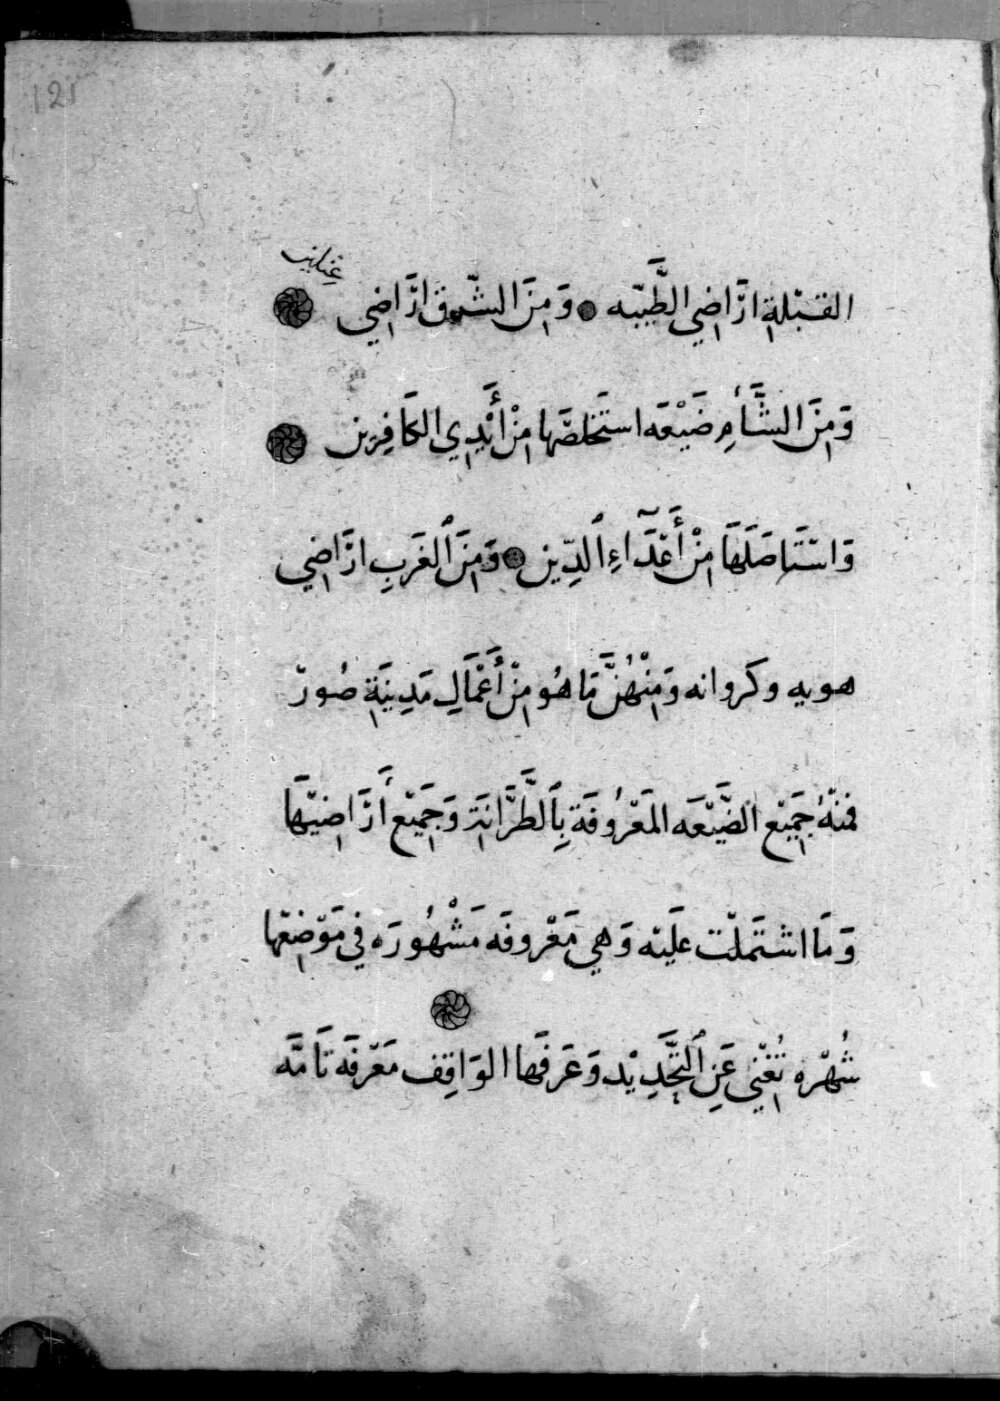 121
القبْلةِ ارَاضِي الطَّيبّه وَمِنَ الشّرق ارَاضِي
وَمِنَ الشَّأمِ ضَيْعَه استَخلصَها مِنْ أَيْدِي الكَافِرين
وَاسْتَاصَلَهَا مِنْ أَعْدَآءِ الدِّين وَمِنَ الغَربِ ارَاضِي
هويه وكروانه وَمِنْهُنَّ مَا هُو مِنْ أَعْمَالِ مَدِينَةِ صُورْ
فمنْهُ جَمِيْع الضَّيْعَه المَعْرُوفَة بِالطَّرَّانَة وَجَمِيْع أَرَاضِيْهَا
وَمَا اشتَملْت عَليْه وَهِي مَعْروفَه مَشْهُورَه فِي مَوْضِعْها
شُهْره تُغْنِي عَنِ التَّحْدِيْد وَعَرفَها الوَاقِف مَعْرفَه تَامَّه